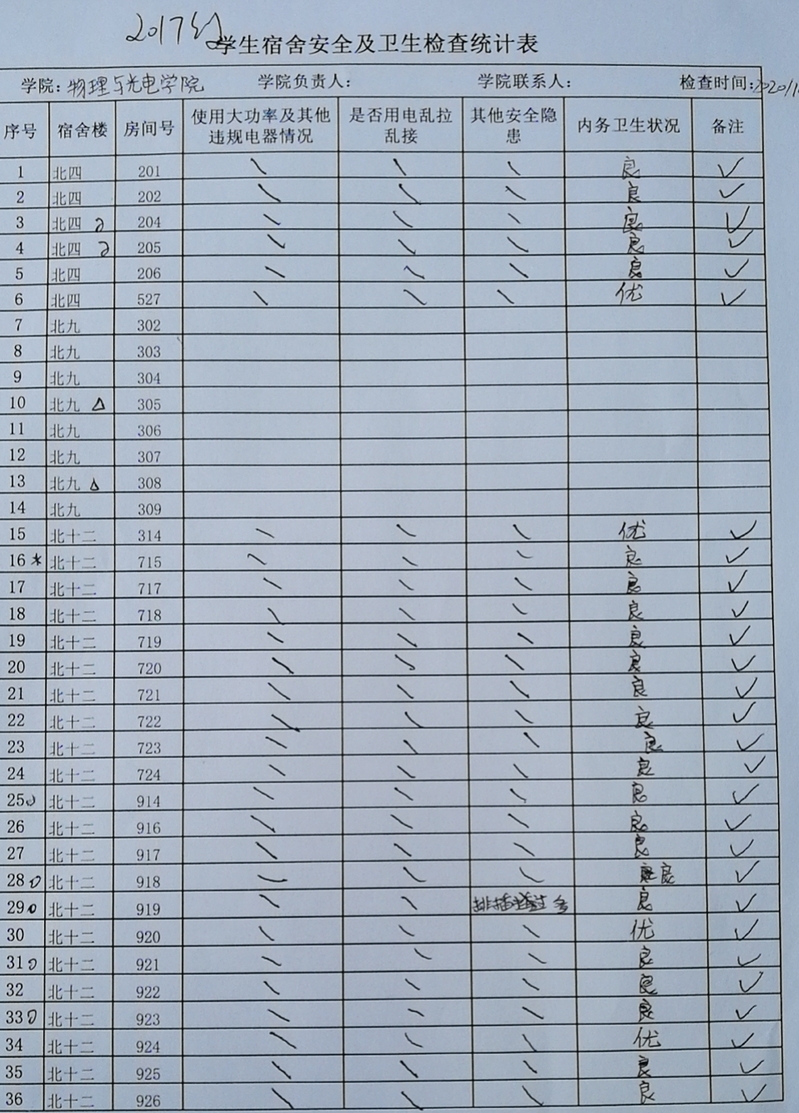 2017级
学生宿舍安全及卫生检查统计表
学院:物理与光电学院 学院负责人: 学院联系人: 检查时间:2020/1
序号 宿舍楼 房间号 使用大功率及其他违规电器情况 是否用电乱拉乱接 其他安全隐患 内务卫生状况 备注
1 北四 201 \ \ \ 良 ✓
2 北四 202 \ \ \ 良 ✓
3 北四 204 \ \ \ 良 ✓
4 北四 205 \ \ \ 良 ✓
5 北四 206 \ \ \ 良 ✓
6 北四 527 \ \ \ 优 ✓
7 北九 302
8 北九 303
9 北九 304
10 北九 △ 305
11 北九 306
12 北九 307
13 北九 △ 308
14 北九 309
15 北十二 314 \ \ \ 优 ✓
16 * 北十二 715 \ \ \ 良 ✓
17 北十二 717 \ \ \ 良 ✓
18 北十二 718 \ \ \ 良 ✓
19 北十二 719 \ \ \ 良 ✓
20 北十二 720 \ \ \ 良 ✓
21 北十二 721 \ \ \ 良 ✓
22 北十二 722 \ \ \ 良 ✓
23 北十二 723 \ \ \ 良 ✓
24 北十二 724 \ \ \ 良 ✓
25 北十二 914 \ \ \ 良 ✓
26 北十二 916 \ \ \ 良 ✓
27 北十二 917 \ \ \ 良 ✓
28 北十二 918 \ \ \ 良 ✓
29 北十二 919 \ \ 排插 过多 良 ✓
30 北十二 920 \ \ \ 优 ✓
31 北十二 921 \ \ \ 良 ✓
32 北十二 922 \ \ \ 良 ✓
33 北十二 923 \ \ \ 良 ✓
34 北十二 924 \ \ \ 优 ✓
35 北十二 925 \ \ \ 良 ✓
36 北十二 926 \ \ \ 良 ✓